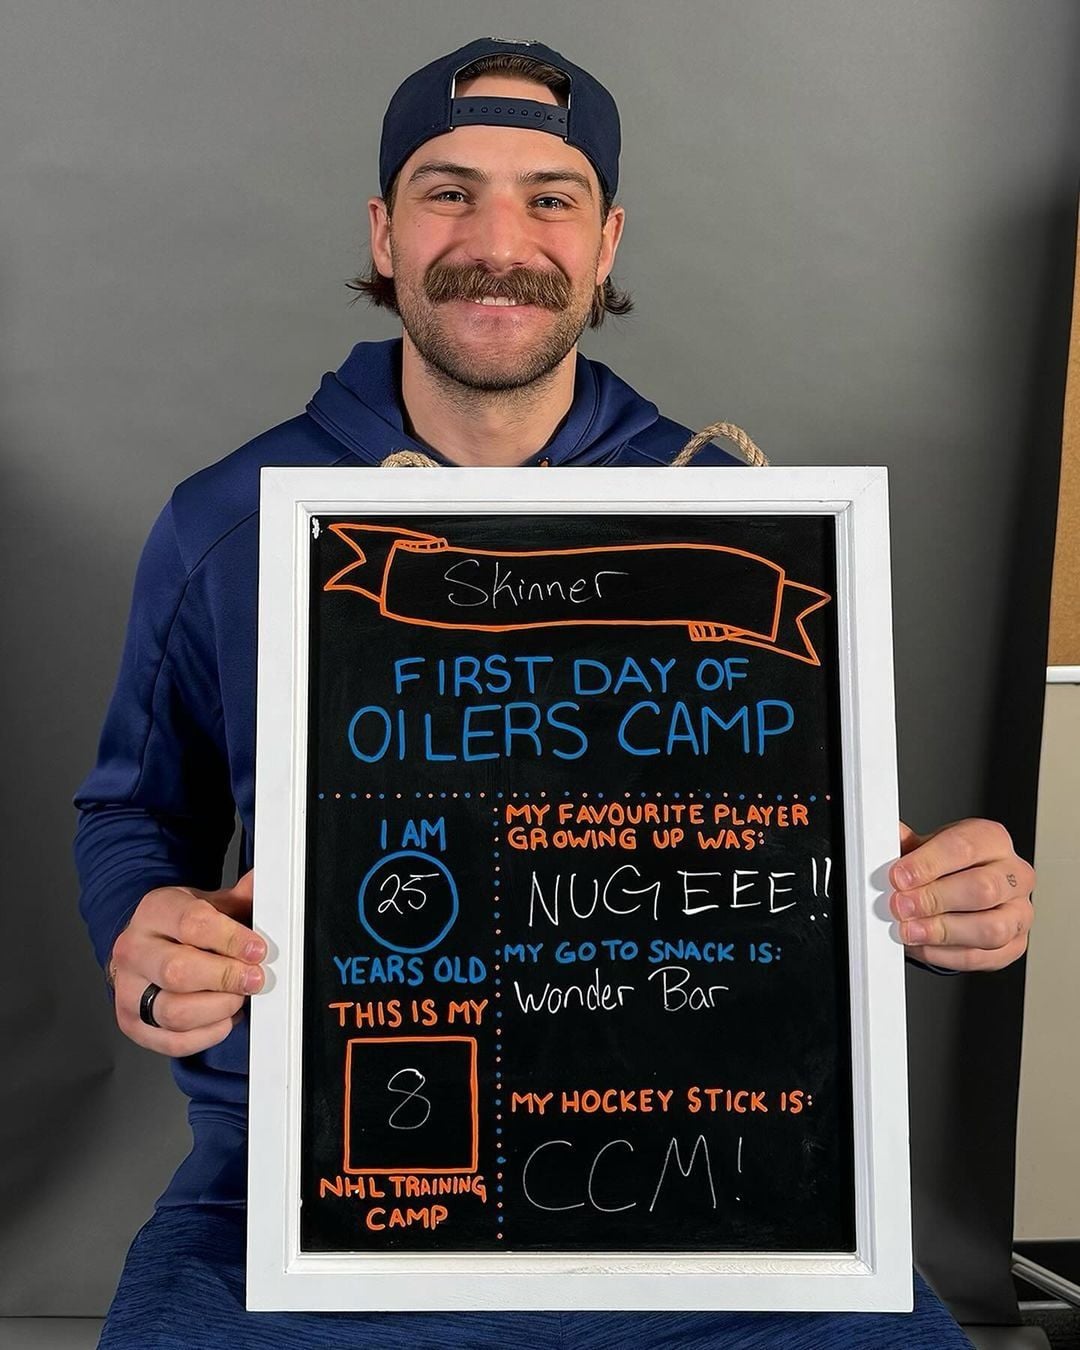 Skinner
FIRST DAY OF
OILERS CAMP
I AM
25
YEARS OLD
THIS IS MY
8
NHL TRAINING
CAMP
MY FAVOURITE PLAYER
GROWING UP WAS:
NUGEEE!!
MY GO TO SNACK IS:
Wonder Bar
MY HOCKEY STICK IS:
CCM!